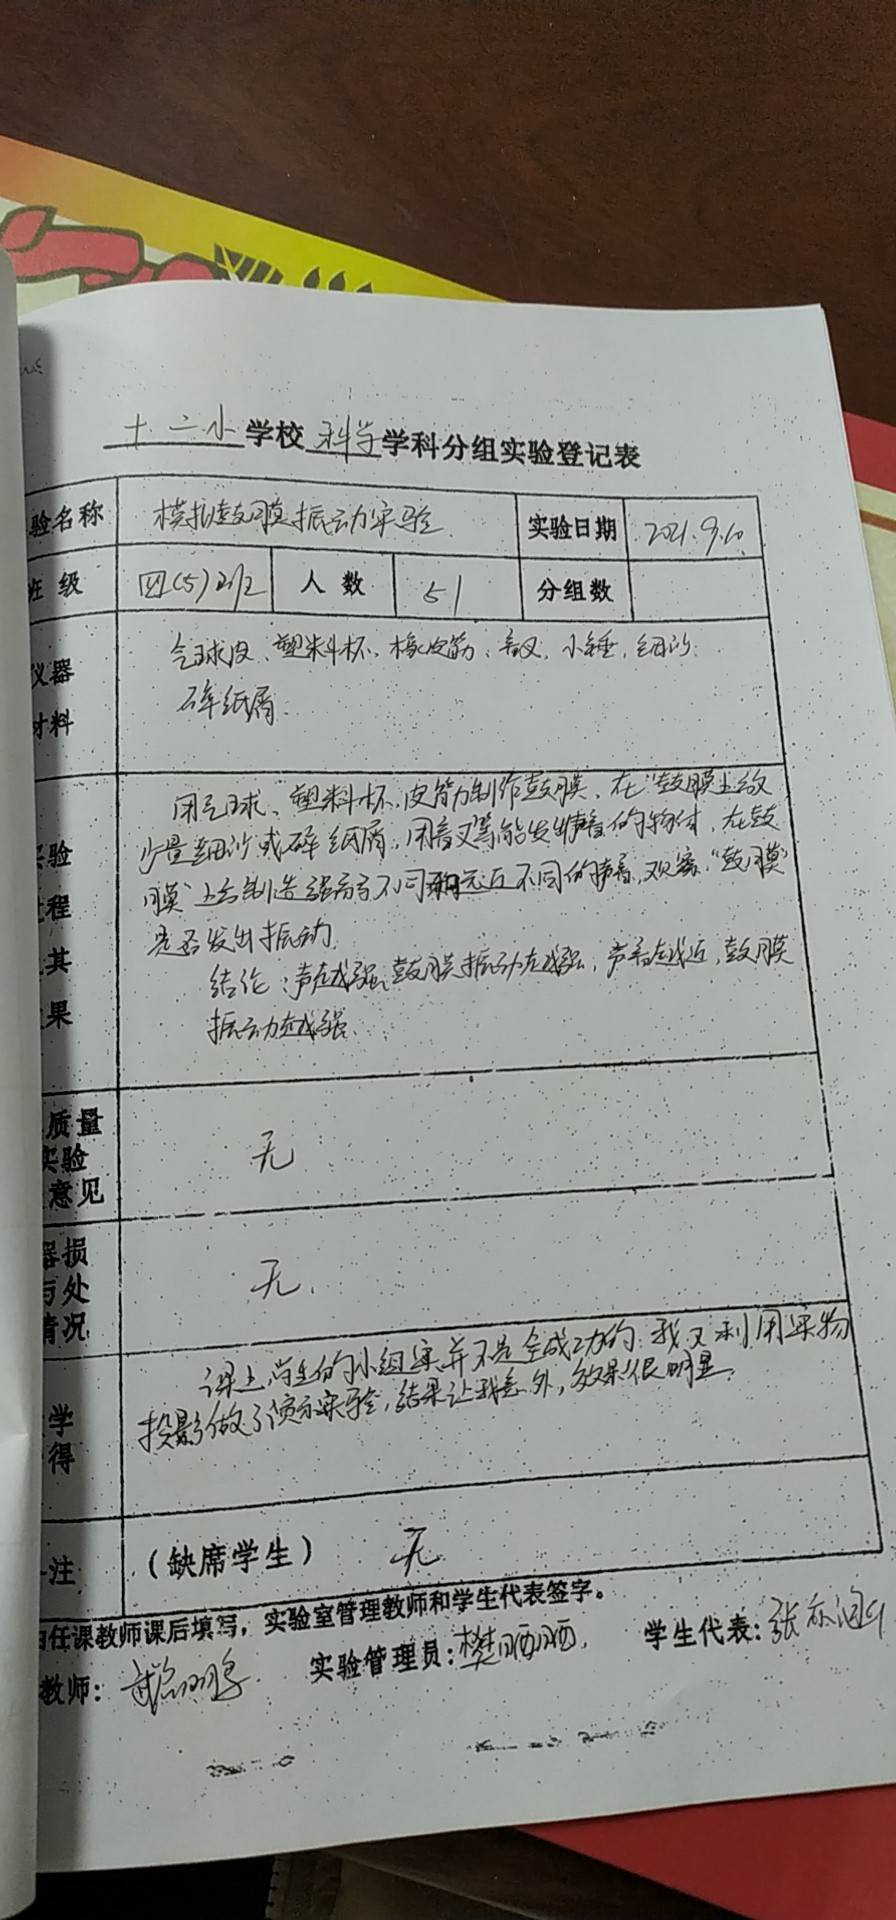 十二小学校科学学科分组实验登记表
验名称 模拟鼓膜振动实验 实验日期 2021.9.10
班级 四(5)班 人数 51 分组数
仪器 气球皮、塑料杯、橡皮筋、音叉、小锤、细沙
材料 碎纸屑
用气球、塑料杯、皮筋制作鼓膜、在“鼓膜上放
实验 少量细沙或碎纸屑,用音叉等能发出声音的物体,在鼓
过程 膜”上方制造强弱不同和远近不同的声音,观察“鼓膜”
其 是否发出振动
果 结论:声音越强,鼓膜振动越强,声音越近,鼓膜
振动越强.
质量
实验 无
意见
器损
与处 无.
情况
课上,学生的小组实并不是全成功的.我又利用实物
学 投影做了演示实验,结果让我意外,效果很明显.
得
注 (缺席学生) 无
由任课教师课后填写,实验室管理教师和学生代表签字。
教师: 实验管理员:樊晒晒. 学生代表:张